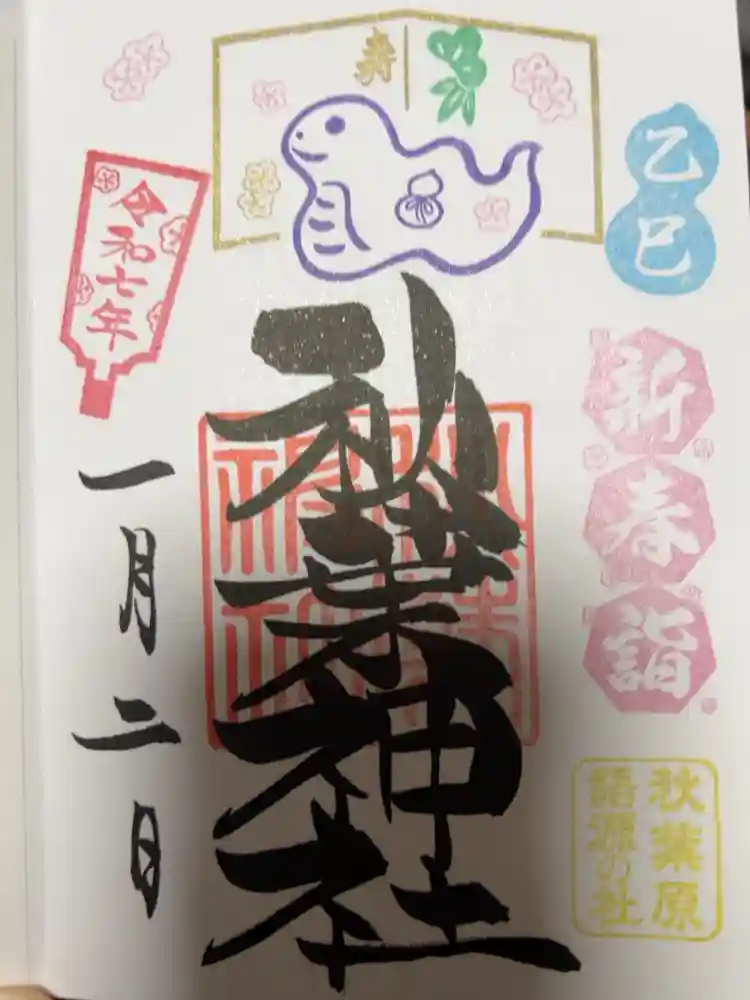 寿
乙巳
新春詣
秋葉原
語源の社
秋葉神社
令和七年
一月二日